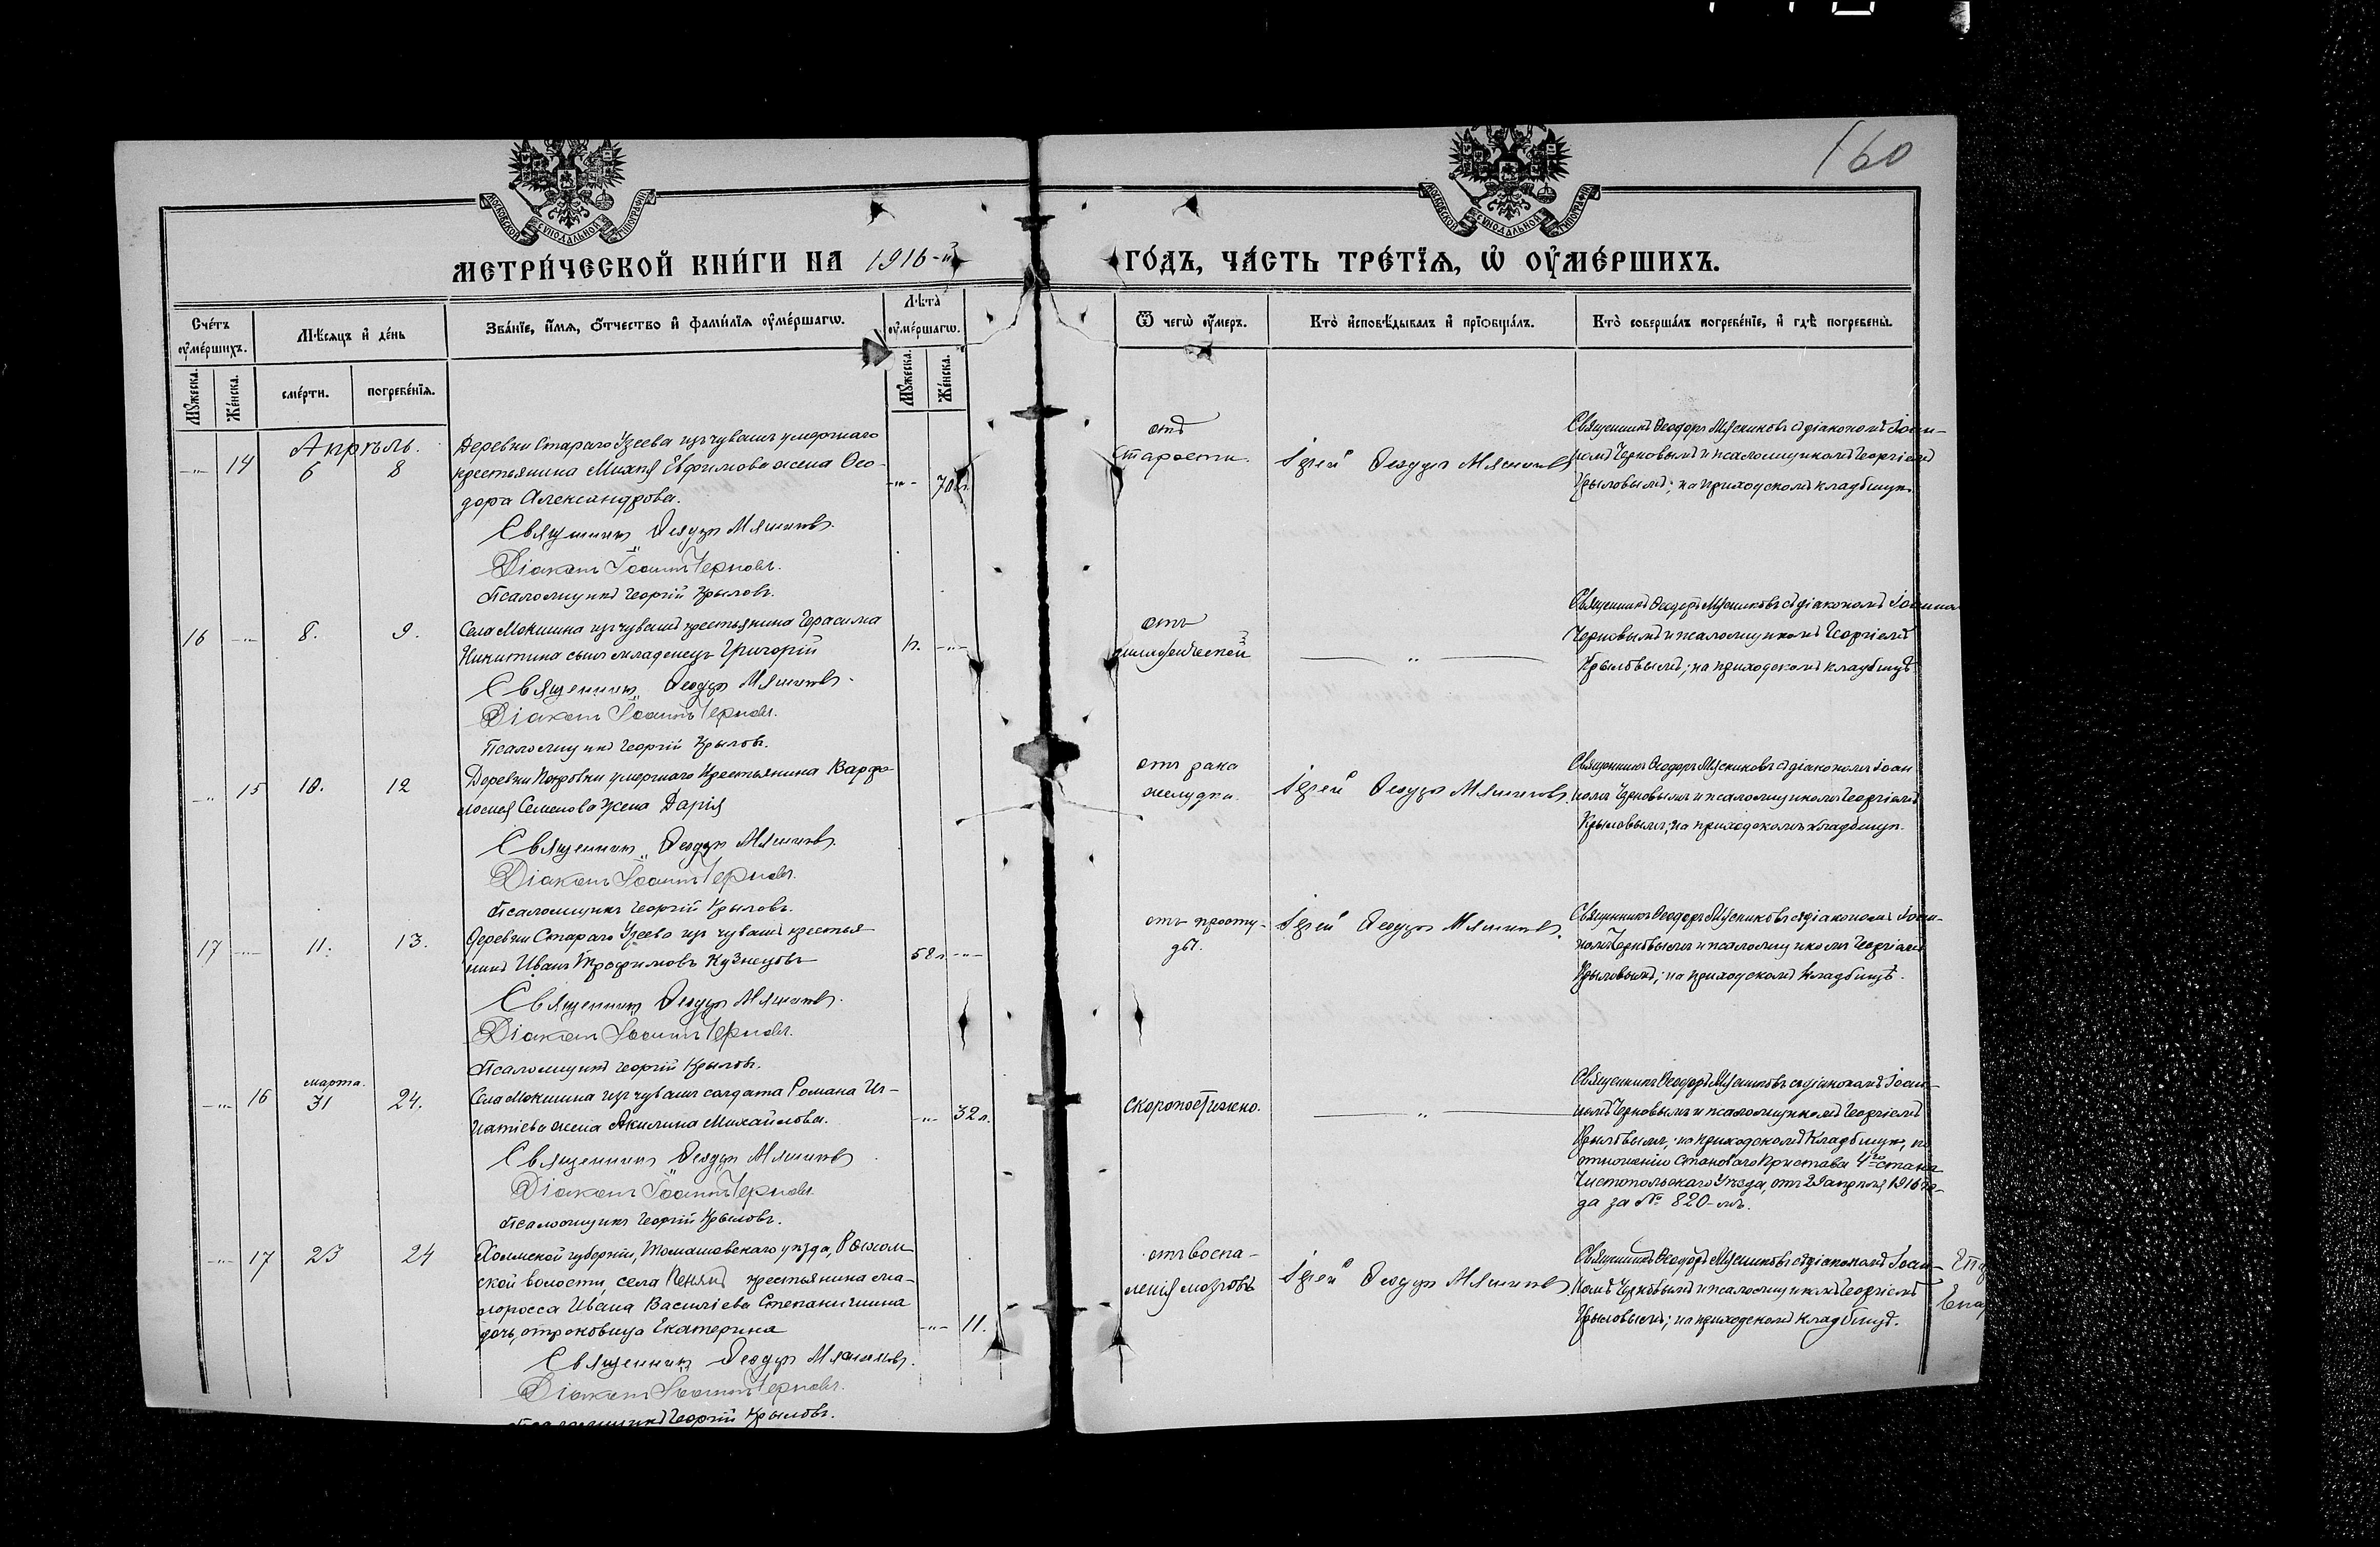 160
МОСКОВСКОЙ СѴНОДАЛЬНОЙ ТИПОГРАФІИ
МОСКОВСКОЙ СѴНОДАЛЬНОЙ ТИПОГРАФІИ
МЕТРИ́ЧЕСКОЙ КНИ́ГИ НА 1916-й
ГО́ДЪ, ЧА́СТЬ ТРЕ́ТЇѦ, Ѡ҆ ОУ҆МЕ́РШИХЪ.
Сче́тъ оу҆ме́ршихъ.
Мꙋ́жеска.
Же́нска.
Мѣ́сѧцъ и҆ де́нь
сме́рти.
погребе́нїѧ.
Зва́нїе, и҆́мѧ, ѻ҆́тчество и҆ фами́лїѧ оу҆ме́ршагѡ.
Лѣ́та̀ оу҆ме́ршагѡ.
Мꙋ́жеска.
Же́нска.
Ѿ чегѡ̀ оу҆́меръ.
Кто̀ и҆сповѣ́дывалъ и҆ прїѡбща́лъ.
Кто̀ соверша́лъ погребе́нїе, и҆ гдѣ̀ погребены̀.
Апрѣль.
-"- 14 6 8
Деревни Стараго Узеева изъ чувашъ умершаго
крестьянина Михея Евфимова жена Ѳео-
дора Александрова.
-"- 70 л.
Священникъ Ѳеодоръ Мясниковъ.
Діаконъ Іоаннъ Черновъ.
Псаломщикъ Георгій Крыловъ.
отъ
старости.
Іерей Ѳеодоръ Мясниковъ
Священникъ Ѳеодоръ Мясниковъ съ діакономъ Іоан-
номъ Черновымъ и псаломщикомъ Георгіемъ
Крыловымъ; на приходскомъ кладбищѣ.
16 -"- 8. 9.
Села Мокшина изъ чувашъ крестьянина Герасима
Никитина сынъ младенецъ Григорій
-"-
Священникъ Ѳеодоръ Мясниковъ.
Діаконъ Іоаннъ Черновъ.
Псаломщикъ Георгій Крыловъ.
отъ
-"-
Священникъ Ѳеодоръ Мясниковъ съ діакономъ Іоанномъ
Черновымъ и псаломщикомъ Георгіемъ
Крыловымъ; на приходскомъ кладбищѣ
-"- 15 10. 12
Деревни Покровки умершаго Крестьянина Варфо-
ломея Семенова жена Дарія
Священникъ Ѳеодоръ Мясниковъ.
Діаконъ Іоаннъ Черновъ.
Псаломщикъ Георгій Крыловъ.
отъ рака
желудка.
Іерей Ѳеодоръ Мясниковъ.
Священникъ Ѳеодоръ Мясниковъ съ діакономъ Іоан
номъ Черновымъ и псаломщикомъ Георгіемъ
Крыловымъ; на приходскомъ кладбищѣ.
17 -"- 11. 13.
Деревни Стараго Узеева изъ чувашъ крестья
нинъ Иванъ Трофимовъ Кузнецовъ
58 л -"-
Священникъ Ѳеодоръ Мясниковъ.
Діаконъ Іоаннъ Черновъ.
Псаломщикъ Георгій Крыловъ.
отъ просту-
ды.
Іерей Ѳеодоръ Мясниковъ.
Священникъ Ѳеодоръ Мясниковъ съ діакономъ Іоан-
номъ Черновымъ и псаломщикомъ Георгіемъ
Крыловымъ; на приходскомъ кладбищѣ.
марта.
-"- 16 31 24.
Села Мокшина изъ чувашъ солдата Романа Иг-
натіева жена Акилина Михайлова.
-"- 32 л.
Священникъ Ѳеодоръ Мясниковъ
Діаконъ Іоаннъ Черновъ
Псаломщикъ Георгій Крыловъ.
скоропостижно.
-"-
Священникъ Ѳеодоръ Мясниковъ съ діакономъ Іоан-
номъ Черновымъ и псаломщикомъ Георгіемъ
Крыловымъ, на приходскомъ Кладбищѣ, по
отношенію Становаго Пристава 4го стана
Чистопольскаго Уѣзда, отъ 29 апрѣля 1916 го-
да за № 820-мъ.
-"- 17 23 24
Холмской губерніи, Томашовскаго уѣзда,
ской волости, села крестьянина ма-
лоросса Ивана Василіева
дочь, отроковица Екатерина
-"- 11.
Священникъ Ѳеодоръ Мясниковъ.
Діаконъ Іоаннъ Черновъ.
Псаломщикъ Георгій Крыловъ.
отъ воспа-
ленія мозговъ
Іерей Ѳеодоръ Мясниковъ
Священникъ Ѳеодоръ Мясниковъ съ діакономъ Іоан-
номъ Черновымъ и псаломщикомъ Георгіемъ
Крыловымъ; на приходскомъ кладбищѣ.